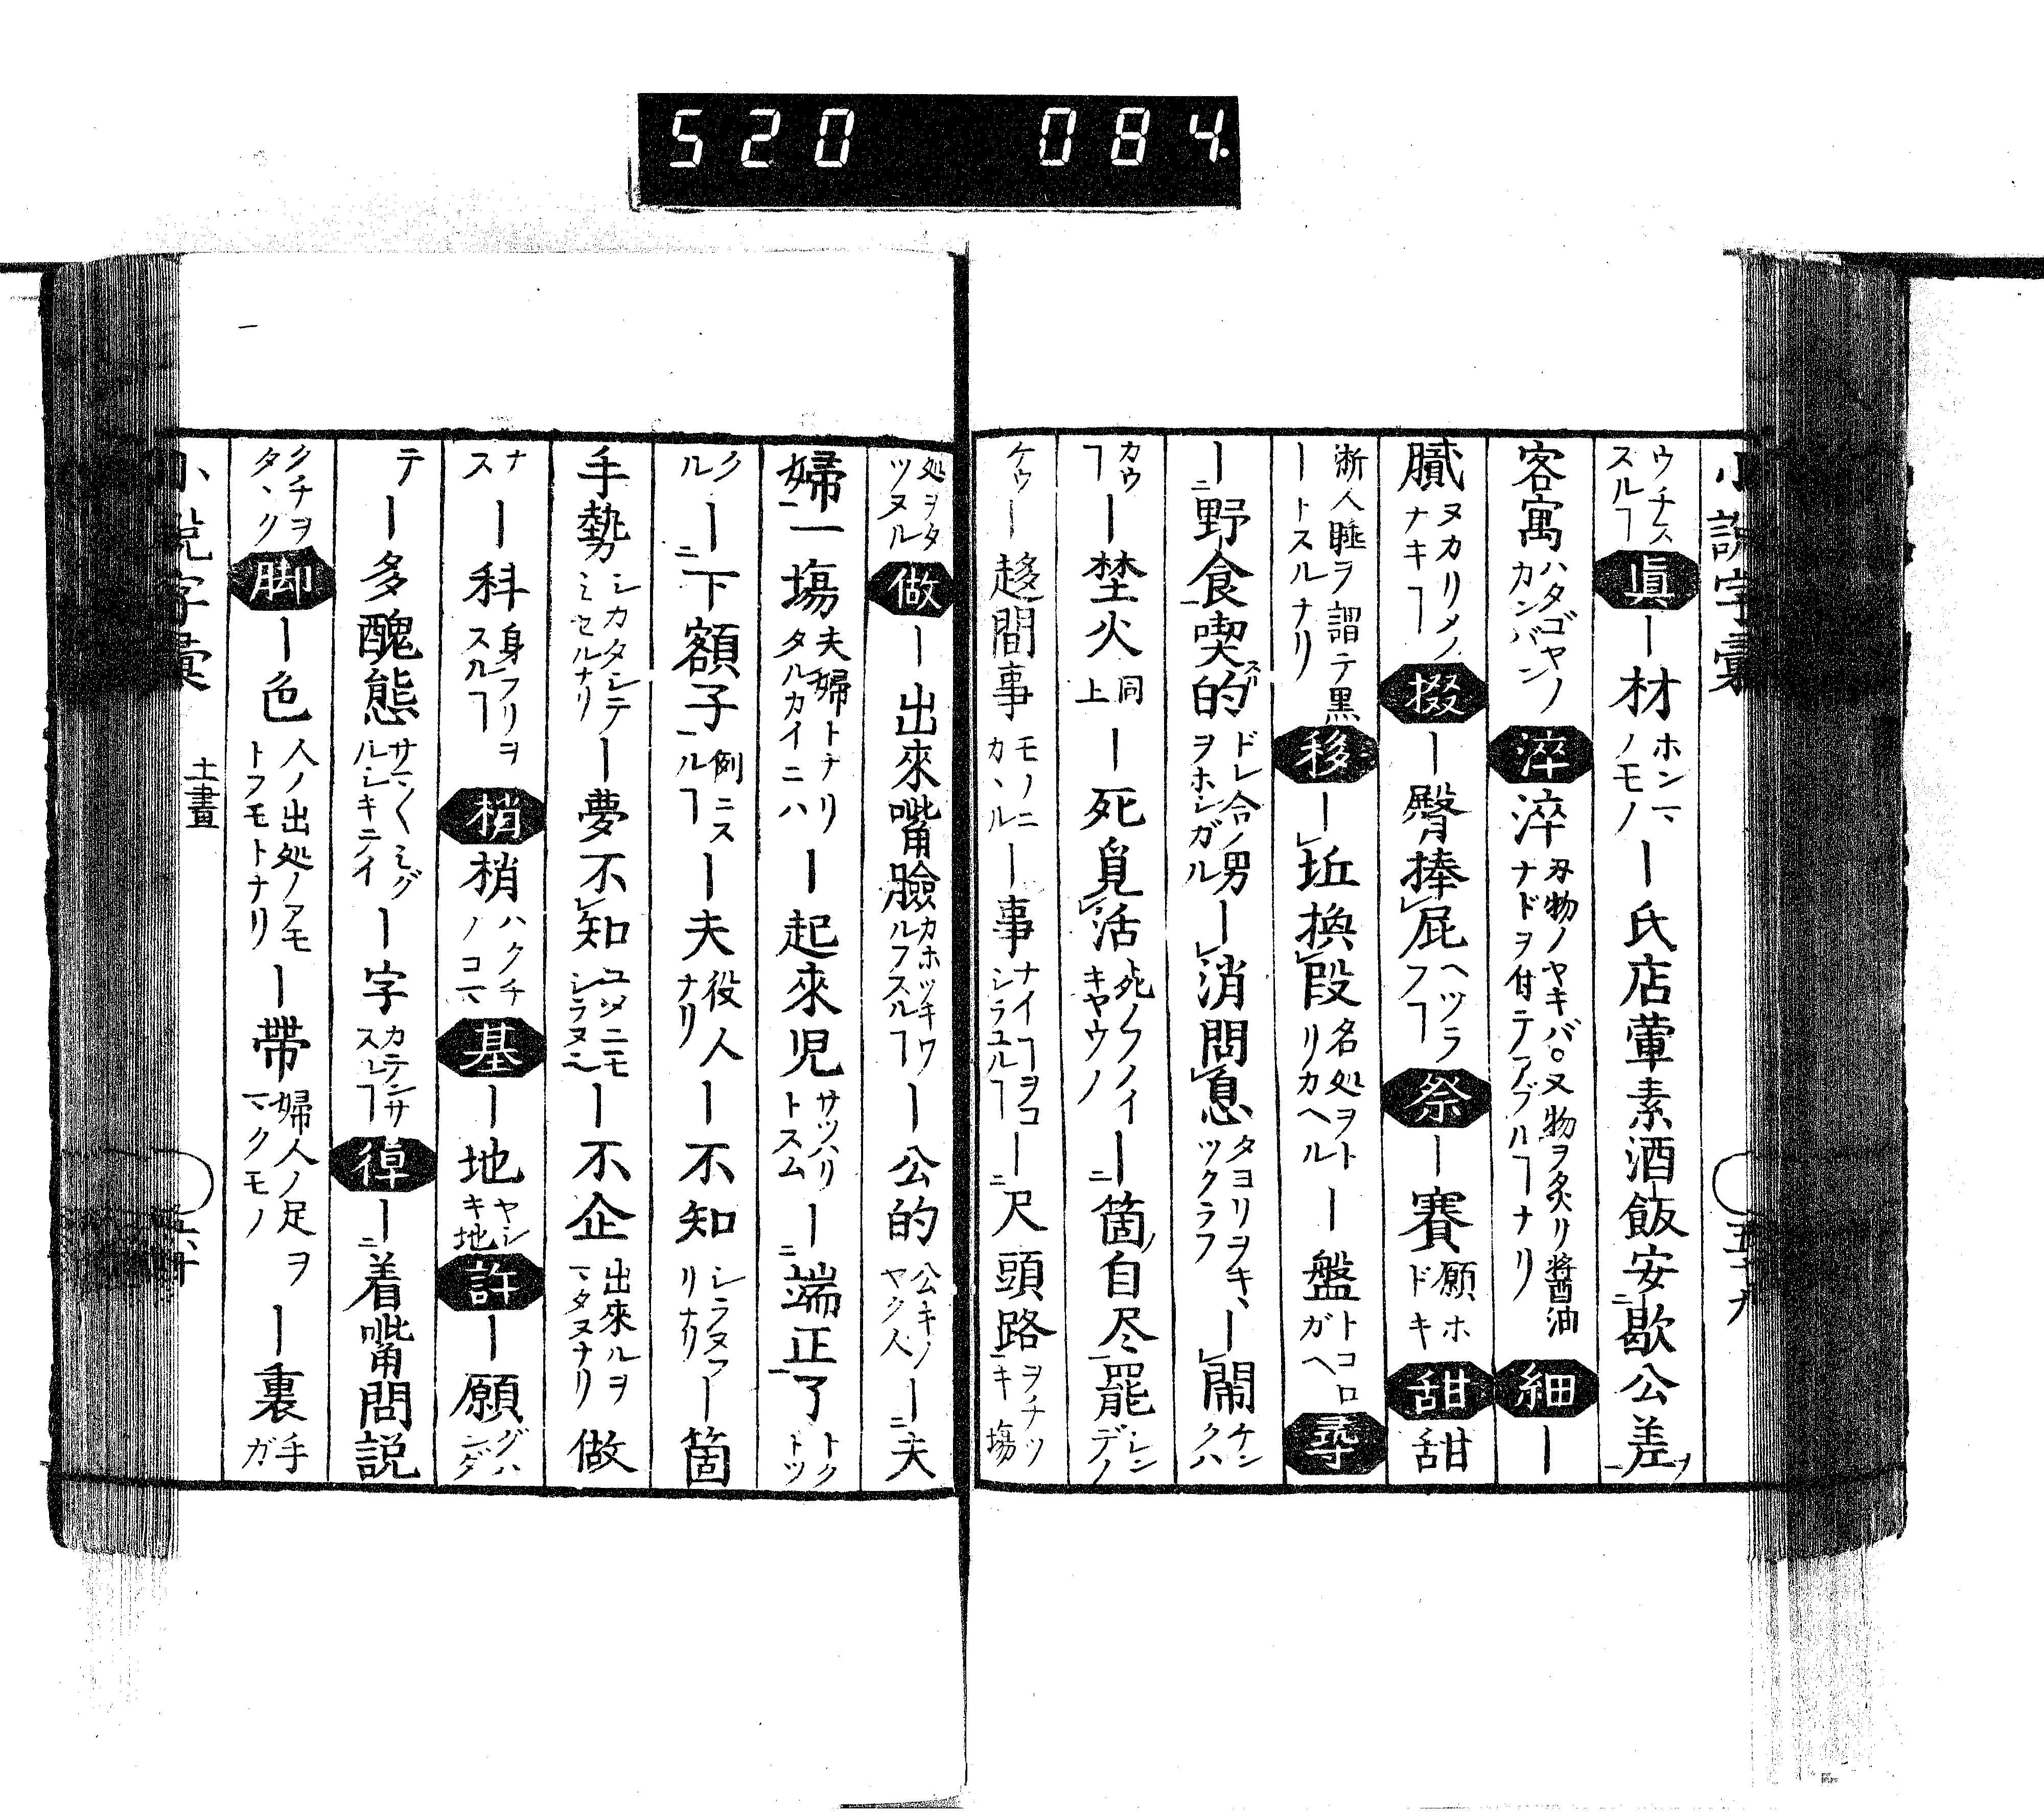 520 084.
小説字彙 五十九
ウチス スルヿ 眞 ー材 ホンマ ノモノ ー氏店葷素酒飯安ニ歇公差一ヲ
客寓 ハタゴヤノ カンバン 淬 淬 刄物ノヤキバ○又物ヲ炙リ醤油 ナドヲ付テアブルヿナリ 細 ー
膩 ヌカリメノ ナキヿ 掇 ー臀捧レ屁 ヘツラ フヿ 祭 ー賽 願ホ ドキ 甜 甜
淅人睡ヲ謂テ黒 ートスルナリ 移 ーレ坵換レ段 名処ヲト リカヘル ー盤 トコロ ガヘ 尋
ーニ野食一喫的スー ドレ合ノ男 ヲホシガル ーレ消問レ息 タヨリヲキヽ ツクラフ ーレ鬧 ケン クハ
カウ ヿ ー埜火 同 上 ー死覓レ活 死ノフノイ キヤウノ ーニ箇ノ自尽一罷 シン デノ
ケウ ー趍間事 モノニ カヽル ー事 ナイヿヲコ シラユルヿ ーニ尺頭路一 ヲチツ キ塲
処ヲタ ツヌル 做 ー出來嘴臉 カホツキワ ルフスルヿ ー公的 公キノ ヤク人 ーニ夫
婦一一塲 夫婦トナリ タルカイニハ ー起來児 サツハリ トスム ーニ端正一了 トク トツ
ク ル ーニ下額子一 例ニス ルヿ ー夫 役人 ナリ ー不知 シラヌフ リナリ ー箇
手勢 シカタシテ ミセルナリ ー夢不レ知 ユメニモ シラヌ ー不企 出來ルヲ マタヌナリ 做
ナ ス ー科 身フリヲ スルヿ 梢 梢 ハクチ ノコマ 基 ー地 ヤシ キ地 許 ー願 グハ ンダ
テ ー多醜態 サマ〱ミグ ルシキニイ ー字 カテンサ スルヿ 得 ーニ着嘴問説
クチヲ タヽク 脚 ー色 人ノ出処ノアモ トフモトナリ ー帶 婦人ノ足ヲ マクモノ ー裏 手 ガ
小説字彙 十一畫 六十